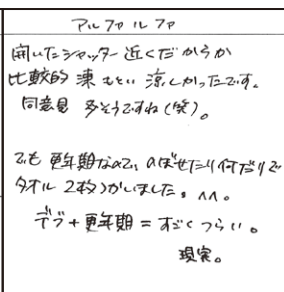 アルファルファ
開いたシャッター近くだからか
比較的 凍 涼しかったです。
同意見 多そうですね(笑)。
でも 更年期なので、のぼせたり何だりで
タオル 2枚 いました。^^。
デブ+更年期=すごくつらい。
現実。